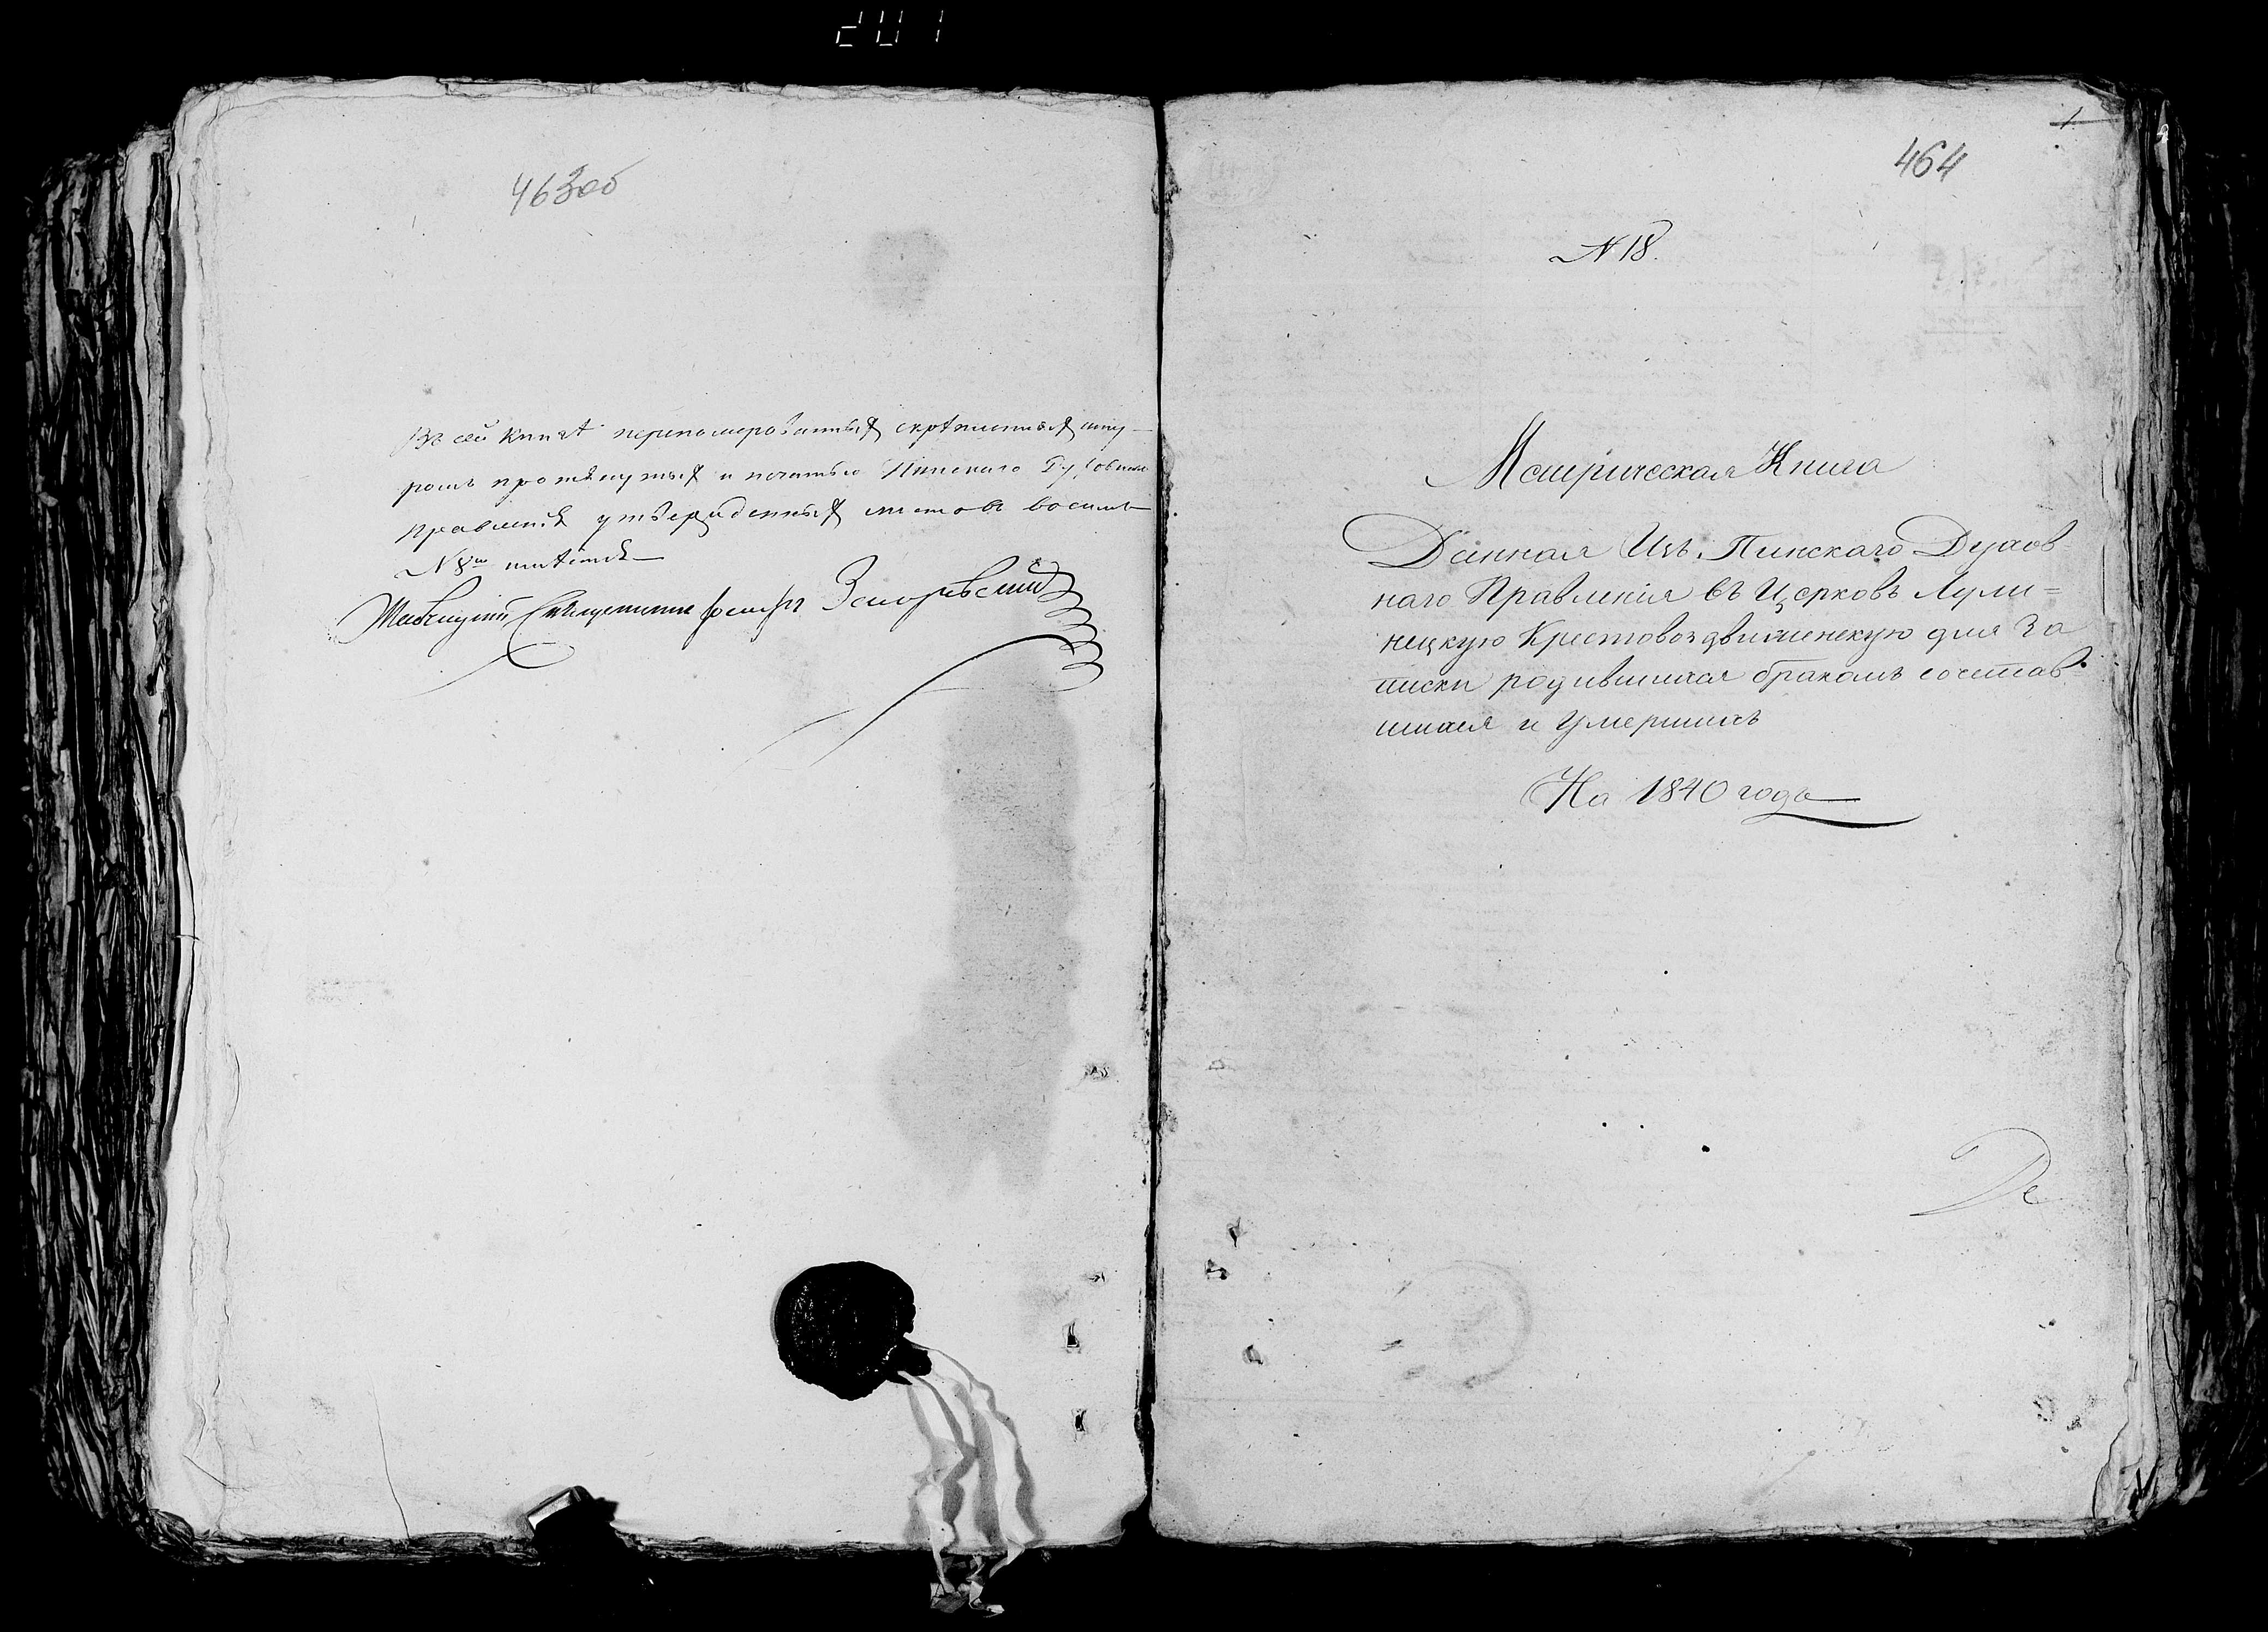 201
463об
Въ сей книгѣ перенумерованныхъ скрѣпленныхъ шну-
ромъ протянутыхъ и печатью Пинскаго Духовнаго
Правленія утвержденныхъ листовъ восемь
N 8
Священникъ
1
464
N 18.
Метрическая Книга
Данная Изъ Пинскаго Духов-
наго Правленія въ Церковь Лули=
нецкую Крестовоздвиженскую для За
писки родившихся бракомъ состав-
шихся и Умершихъ
На 1840 годъ
De